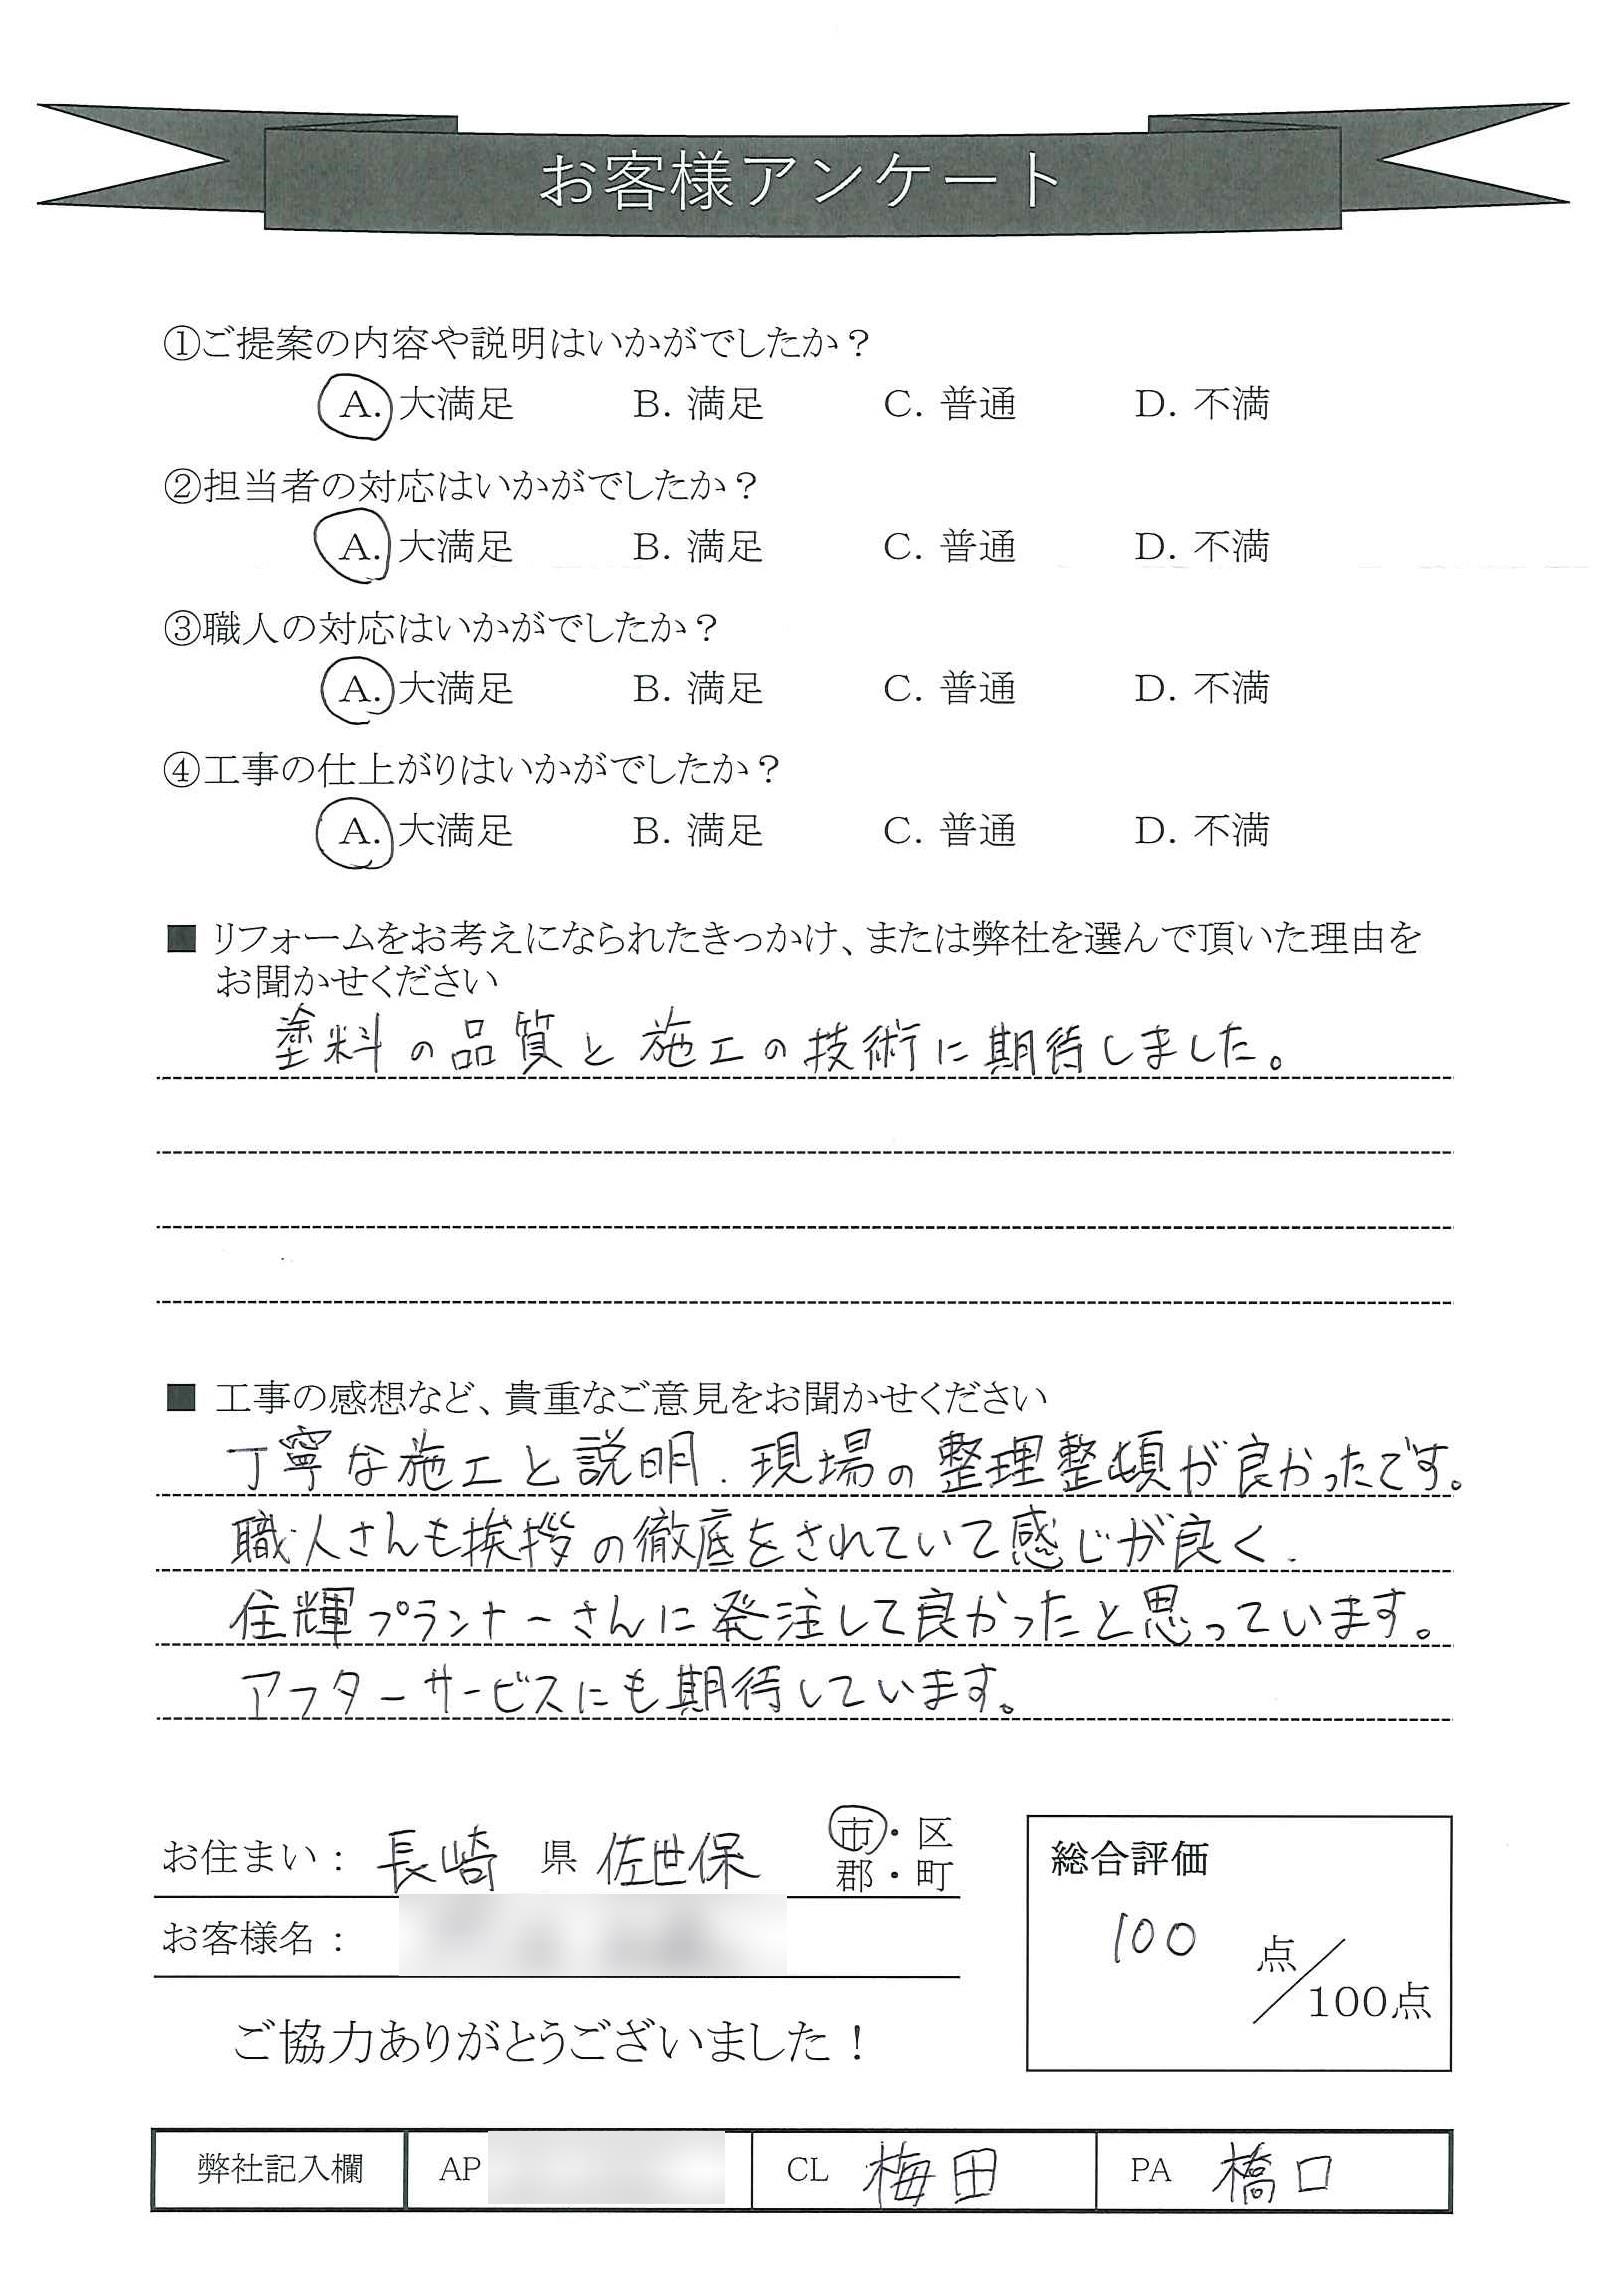 お客様アンケート
①ご提案の内容や説明はいかがでしたか？
A. 大満足 B. 満足 C. 普通 D. 不満
②担当者の対応はいかがでしたか？
A. 大満足 B. 満足 C. 普通 D. 不満
③職人の対応はいかがでしたか？
A. 大満足 B. 満足 C. 普通 D. 不満
④工事の仕上がりはいかがでしたか？
A. 大満足 B. 満足 C. 普通 D. 不満
■ リフォームをお考えになられたきっかけ、または弊社を選んで頂いた理由を
お聞かせください
塗料の品質と施工の技術に期待しました。
■ 工事の感想など、貴重なご意見をお聞かせください
丁寧な施工と説明、現場の整理整頓が良かったです。
職人さんも挨拶の徹底をされていて感じが良く、
住輝プランナーさんに発注して良かったと思っています。
アフターサービスにも期待しています。
お住まい： 長崎 県 佐世保 市・区
郡・町
お客様名：
総合評価
100 点／100点
ご協力ありがとうございました！
弊社記入欄 AP CL 梅田 PA 橋口